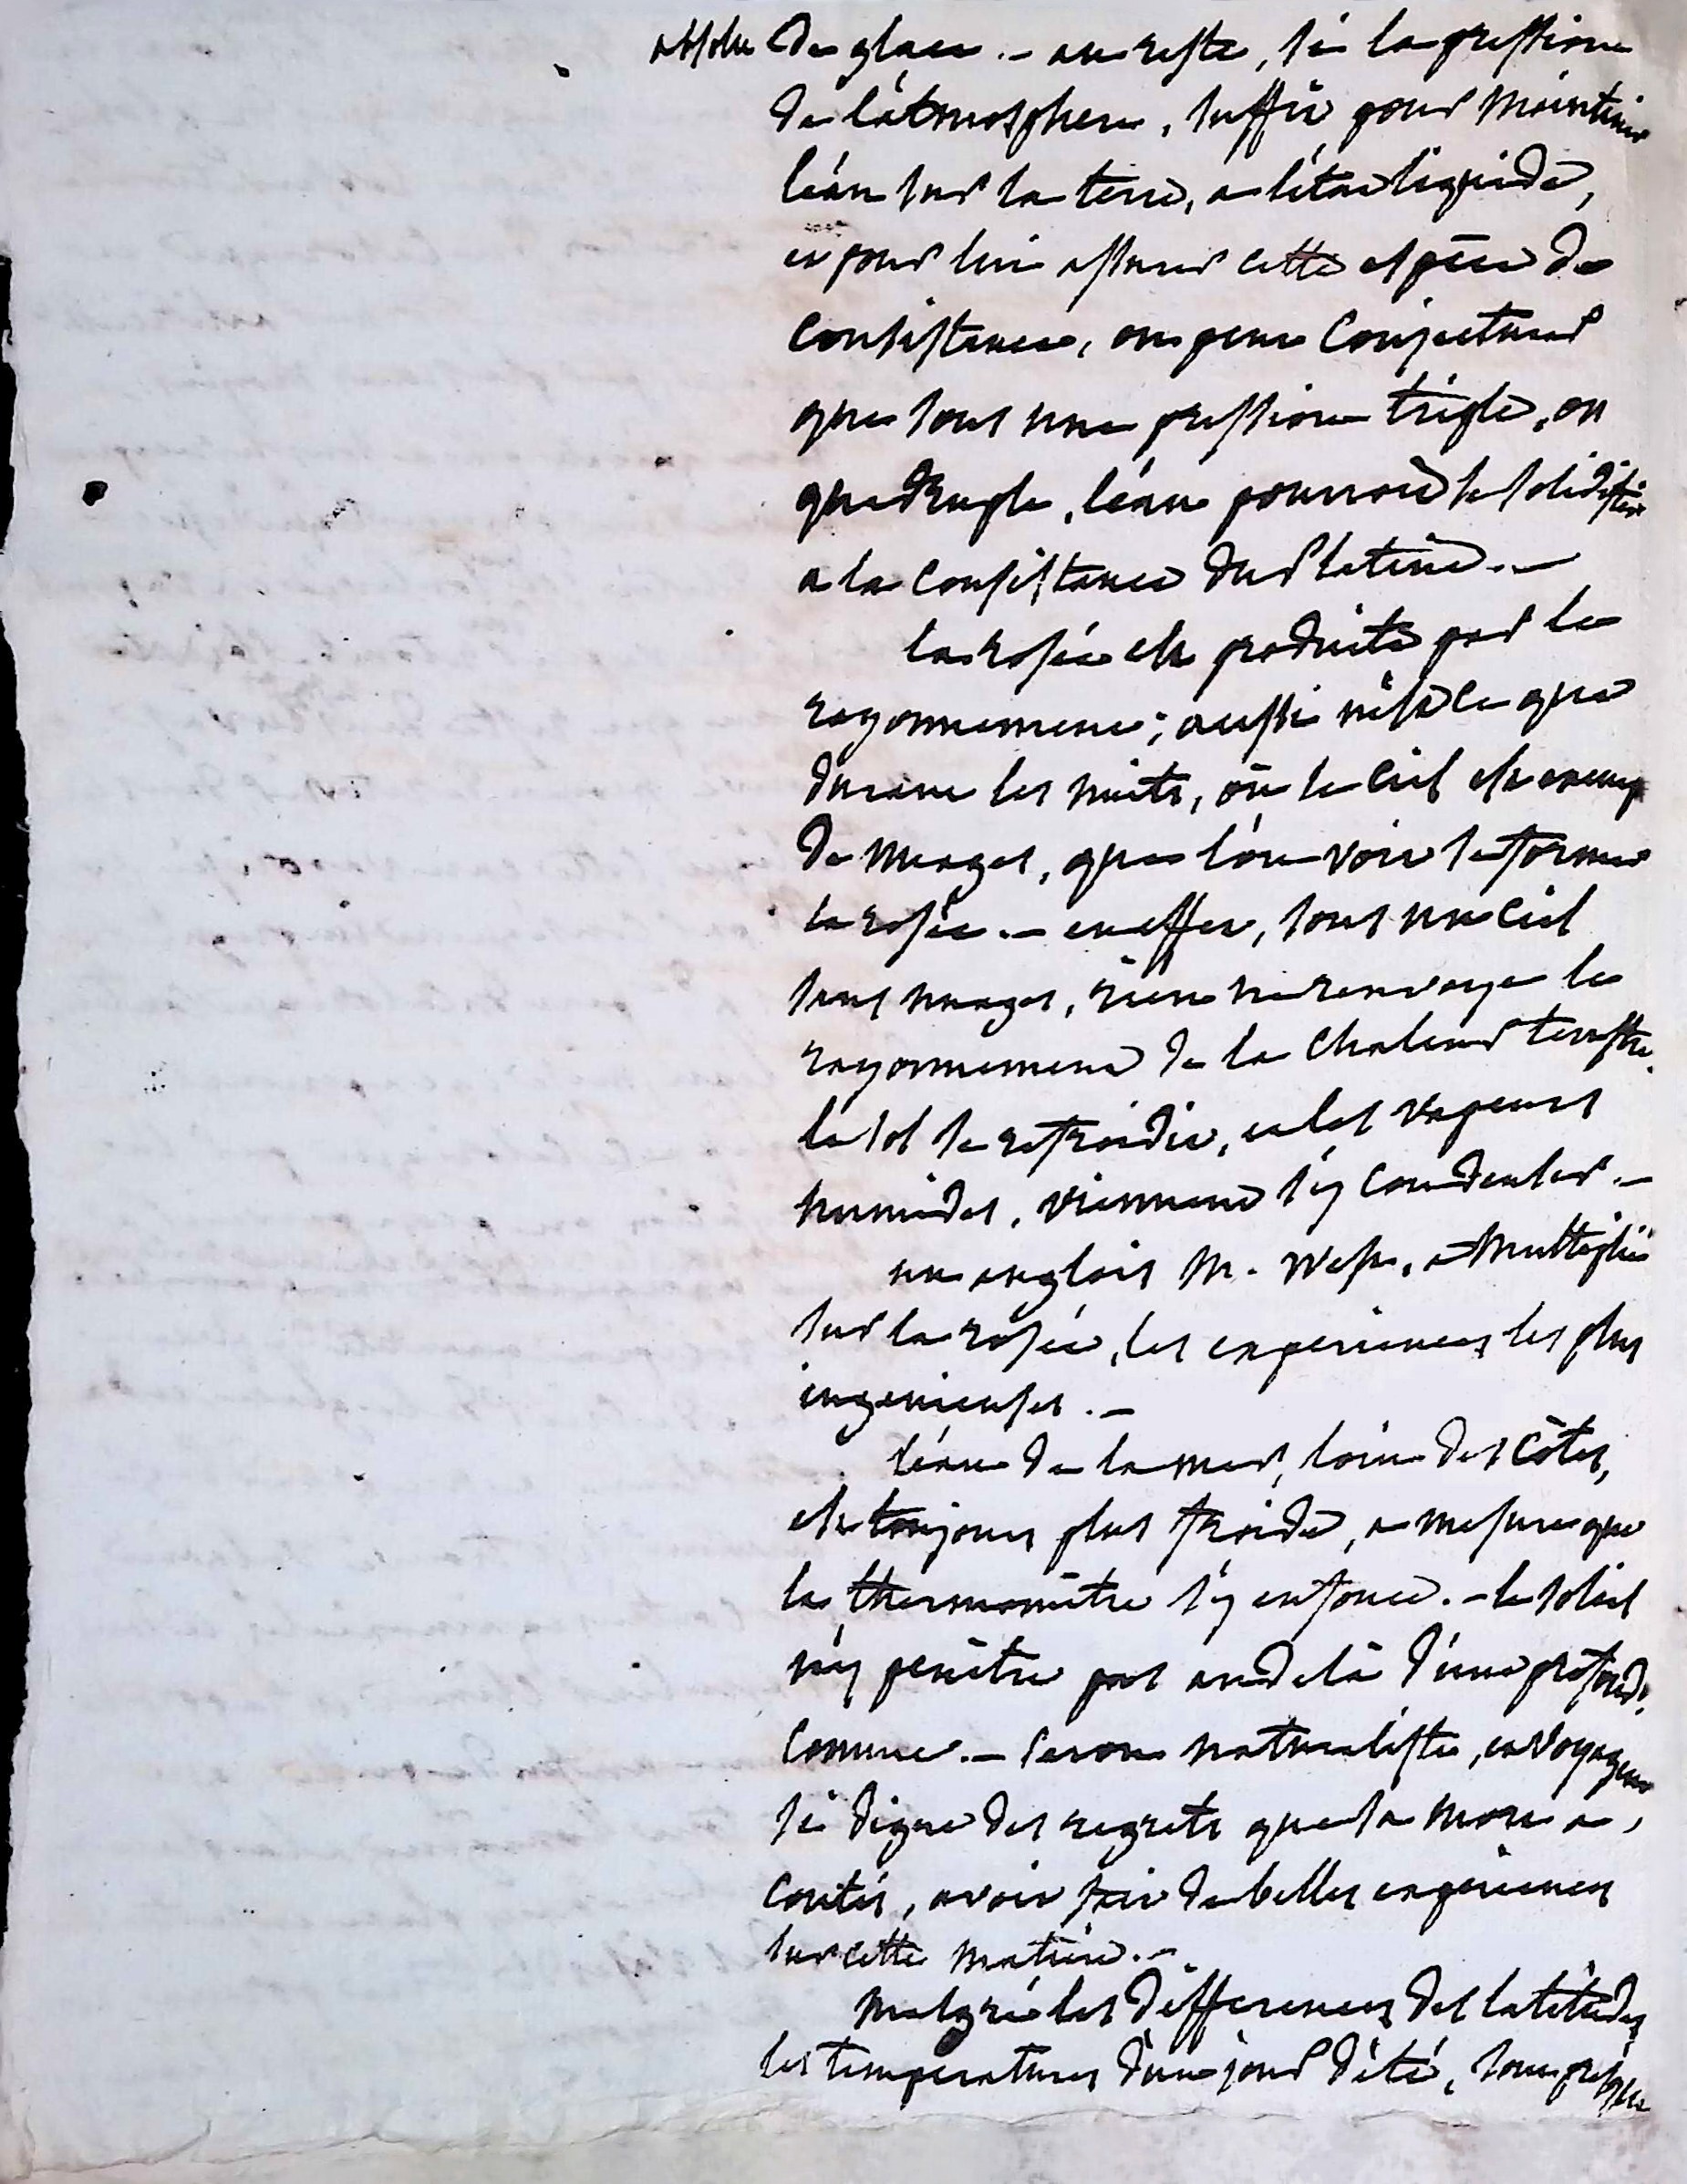 absolue de glace. – au reste, si la pression
de l'atmosphere, suffit pour maintenir
l'eau sur la terre, a l'état liquide,
et pour lui assurer cette espèce de
consistance, on peut conjecturer
que sous une pression triple, ou
quadruple, l'eau pourroit se solidifier
a la consistance du platine. –
la rosée est produite par le
rayonnement ; aussi n'est ce que
durant les nuits, où le ciel est exempt
de nuages, que l'on voit se former
la rosée. – en effet, sous un ciel
sans nuages, rien ne renvoye le
rayonnement de la chaleur terrestre.
le sol se refroidit, et les vapeurs
humides, viennent s'y condenser. –
un anglois M. , a multiplié
sur la rosée, les experiences les plus
ingenieuses. –
l'eau de la mer, loin des côtes,
est toujours plus froide, a mesure que
le thermomètre s'y enfonce. – le soleil
n'y penètre pas au delà d'une profond.
connue. – naturaliste, et voyageur
si digne des regrets que sa mort a
coutés, avoit fait de belles experiences
sur cette matière. –
malgré les differences des latitudes
les temperatures d'un jour d'été, sont presque